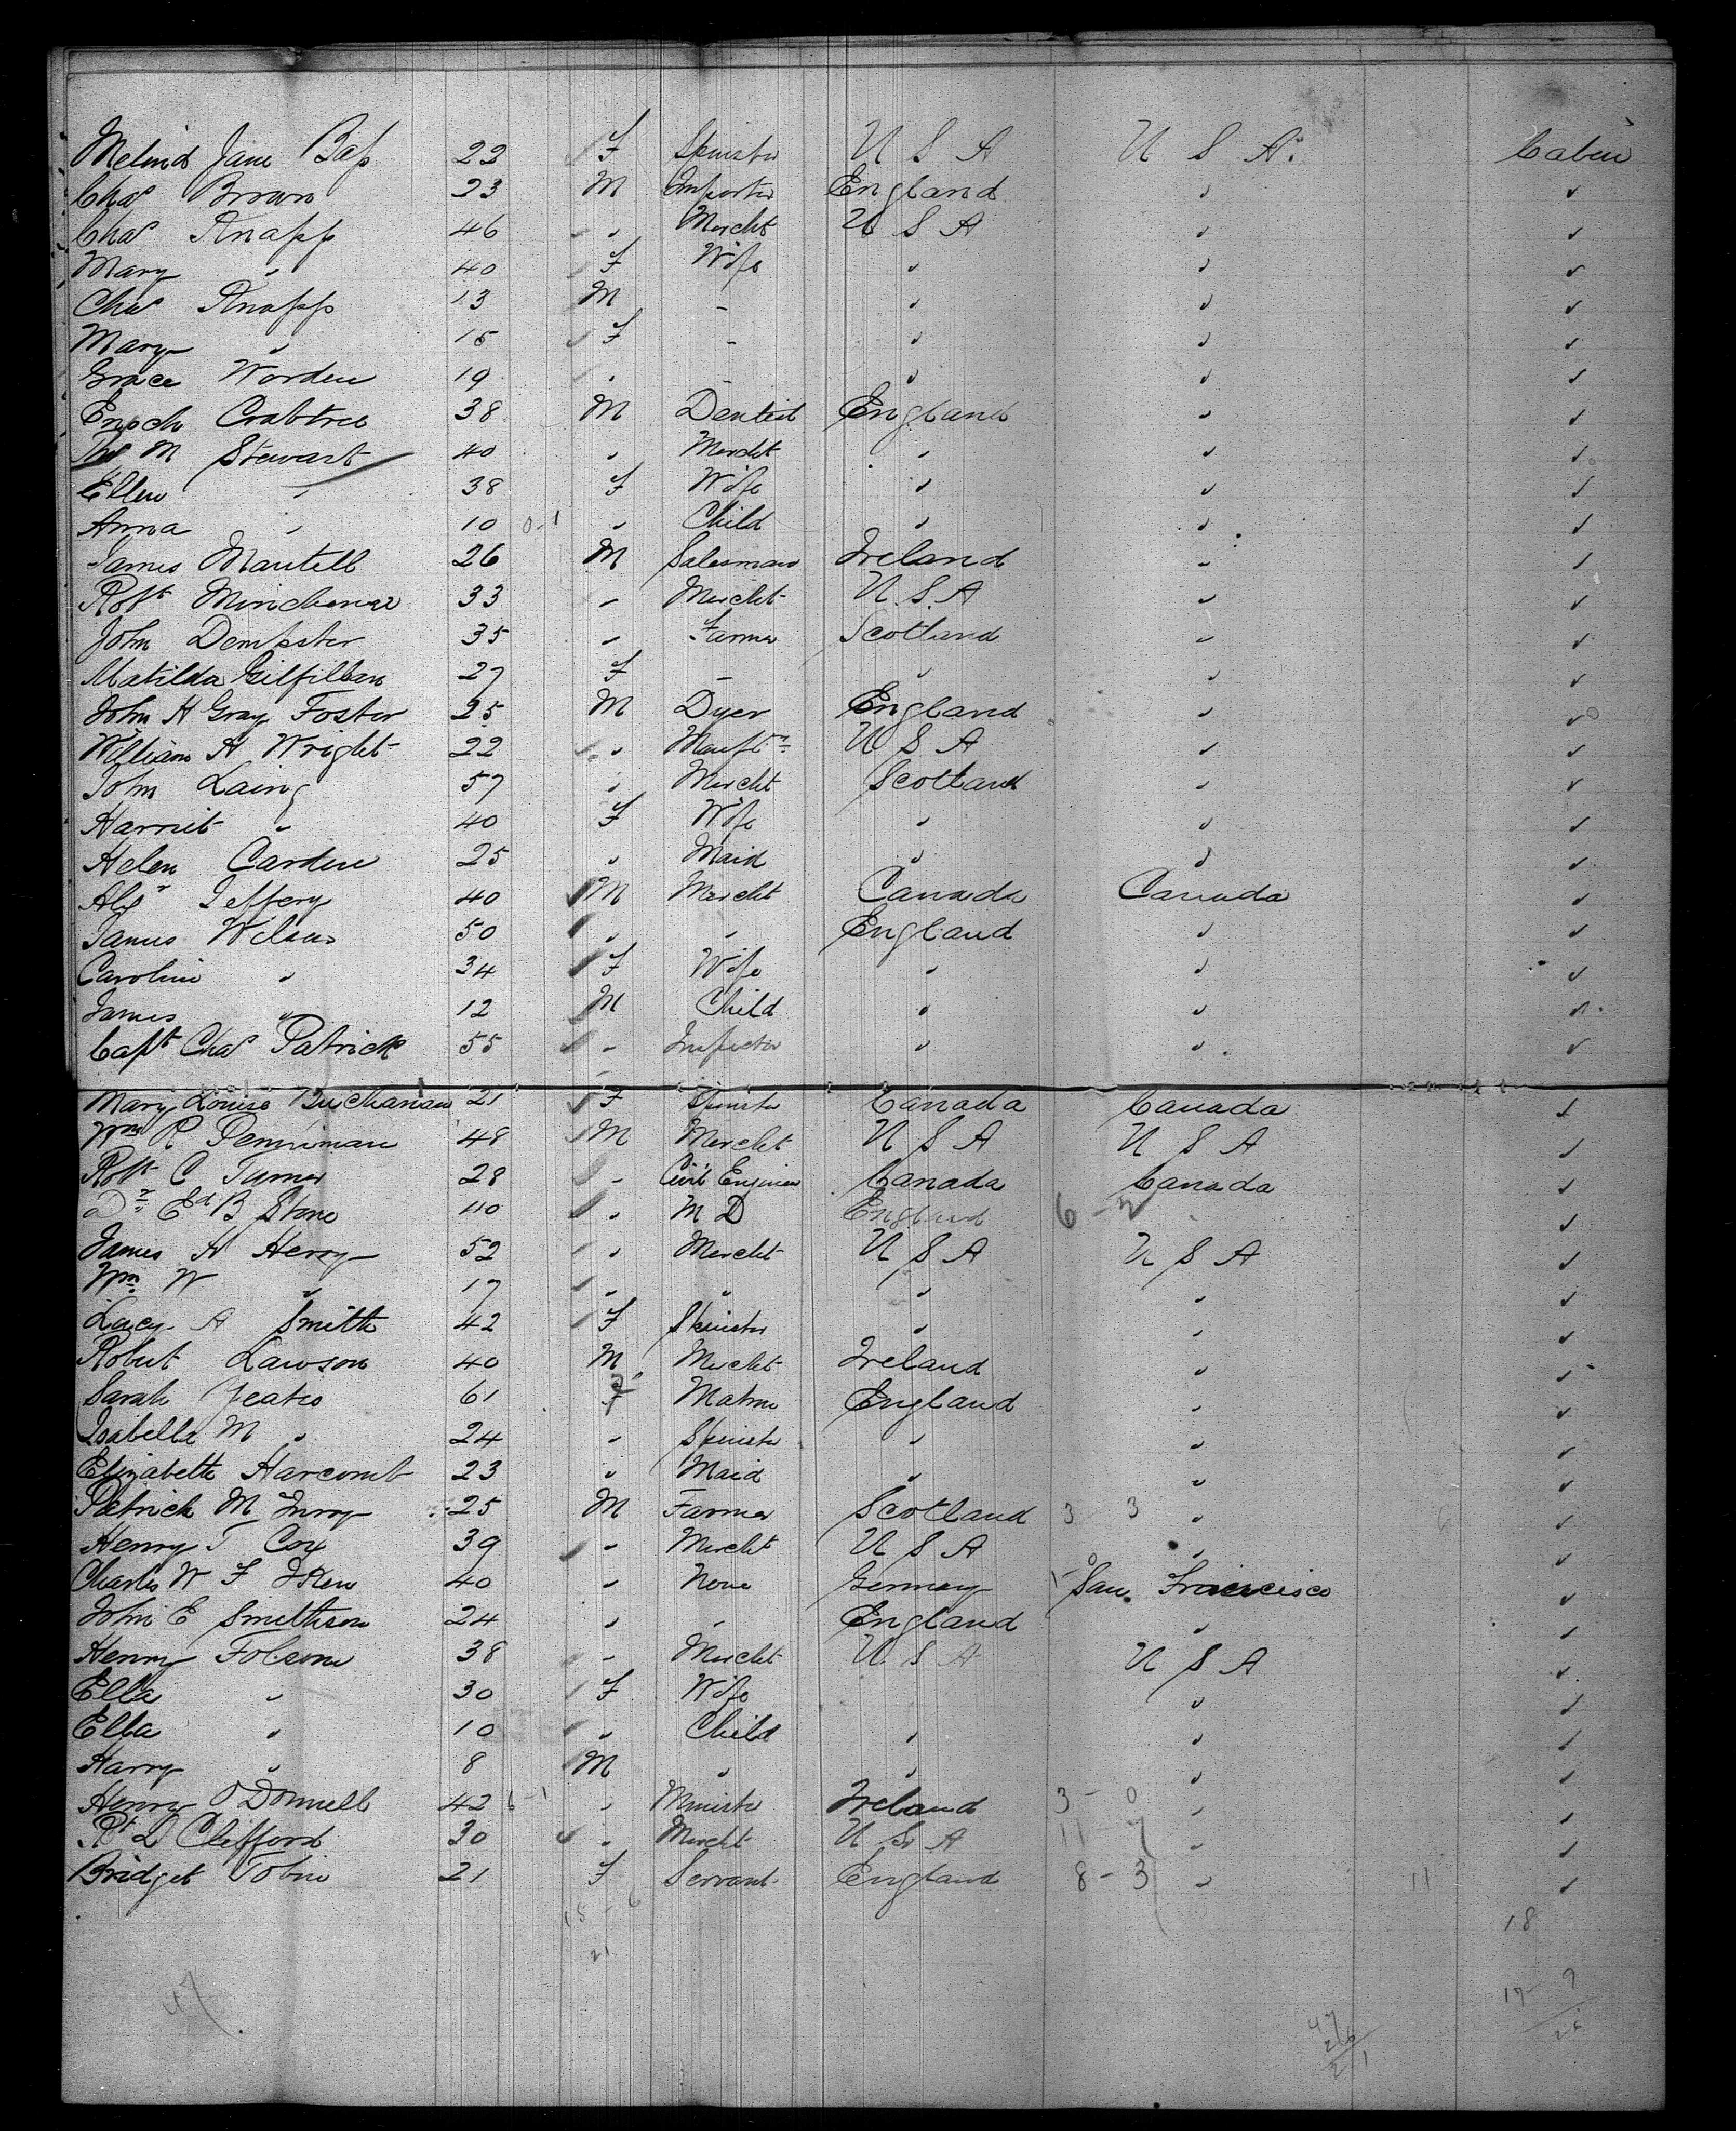 Melind Jane Bass 22 F Spinster U S A U S A. Cabin
Chas Brown 23 M Importer England " "
Chas Knapp 46 " Mercht U S A " "
Mary " 40 F Wife " " "
Chas Knapp 13 M - " " "
Mary " 15 F - " " "
Grace Worden 19 " - " " "
Enoch Crabtree 38 M Dentist England " "
M Stewart 40 " Mercht " " "
Ellen " 38 F Wife " " "
Anna " 10 0-1 " Child " " "
James Mantell 26 M Salesman Ireland " "
Robt 33 " Mercht U.S.A " "
John Dempster 35 " Farmer Scotland " "
Matilda Gilfillan 27 F - " " "
John H Gray Foster 25 M Dyer England " "
William H Wright 22 " Manftr U S A " "
John Laing 57 " Mercht Scotland " "
Harriet " 40 F Wife " " "
Helen Carden 25 " Maid " " "
Alexr Jeffery 40 M Mercht Canada Canada "
James Wilson 50 " " England " "
Caroline " 34 F Wife " " "
James " 12 M Child " " "
Capt Chas Patrick 55 " Inspector " " "
Mary Louise Buchanan 21 F Spinster Canada Canada "
Wm R Penniman 48 M Mercht U S A U S A "
Robt C Turner 28 " Civil Engineer Canada Canada "
Dr Ed B Stone 40 " M D England 6-2 "
James H Henry 52 " Mercht U S A U S A "
Wm W " 17 " " " " "
Lucy A Smith 42 F Spinster " " "
Robert Lawson 40 M Mercht Ireland " "
Sarah Yeates 61 F Matron England " "
Isabella M " 24 " Spinster " " "
Elizabeth Harcomb 23 " Maid " " "
Patrick M 25 M Farmer Scotland 3 3 " 6 "
Henry T Cox 39 " Mercht U S A " "
Charles W F 40 " None Germany San Francisco "
John E Smithson 24 " " England " "
Henry Folsom 38 " Mercht U S A U S A "
Ella " 30 F Wife " "
Ella " 10 " Child " " "
Harry " 8 M " " " "
Henry O'Donnell 42 6-1 " Minister Ireland 3-0 " "
Rt L Clifford 30 " Mercht U S A 11 7 " "
Bridget Tobin 21 F Servant England 8-3 " 11 "
15-6 18
21
47 17-9
47
26
21